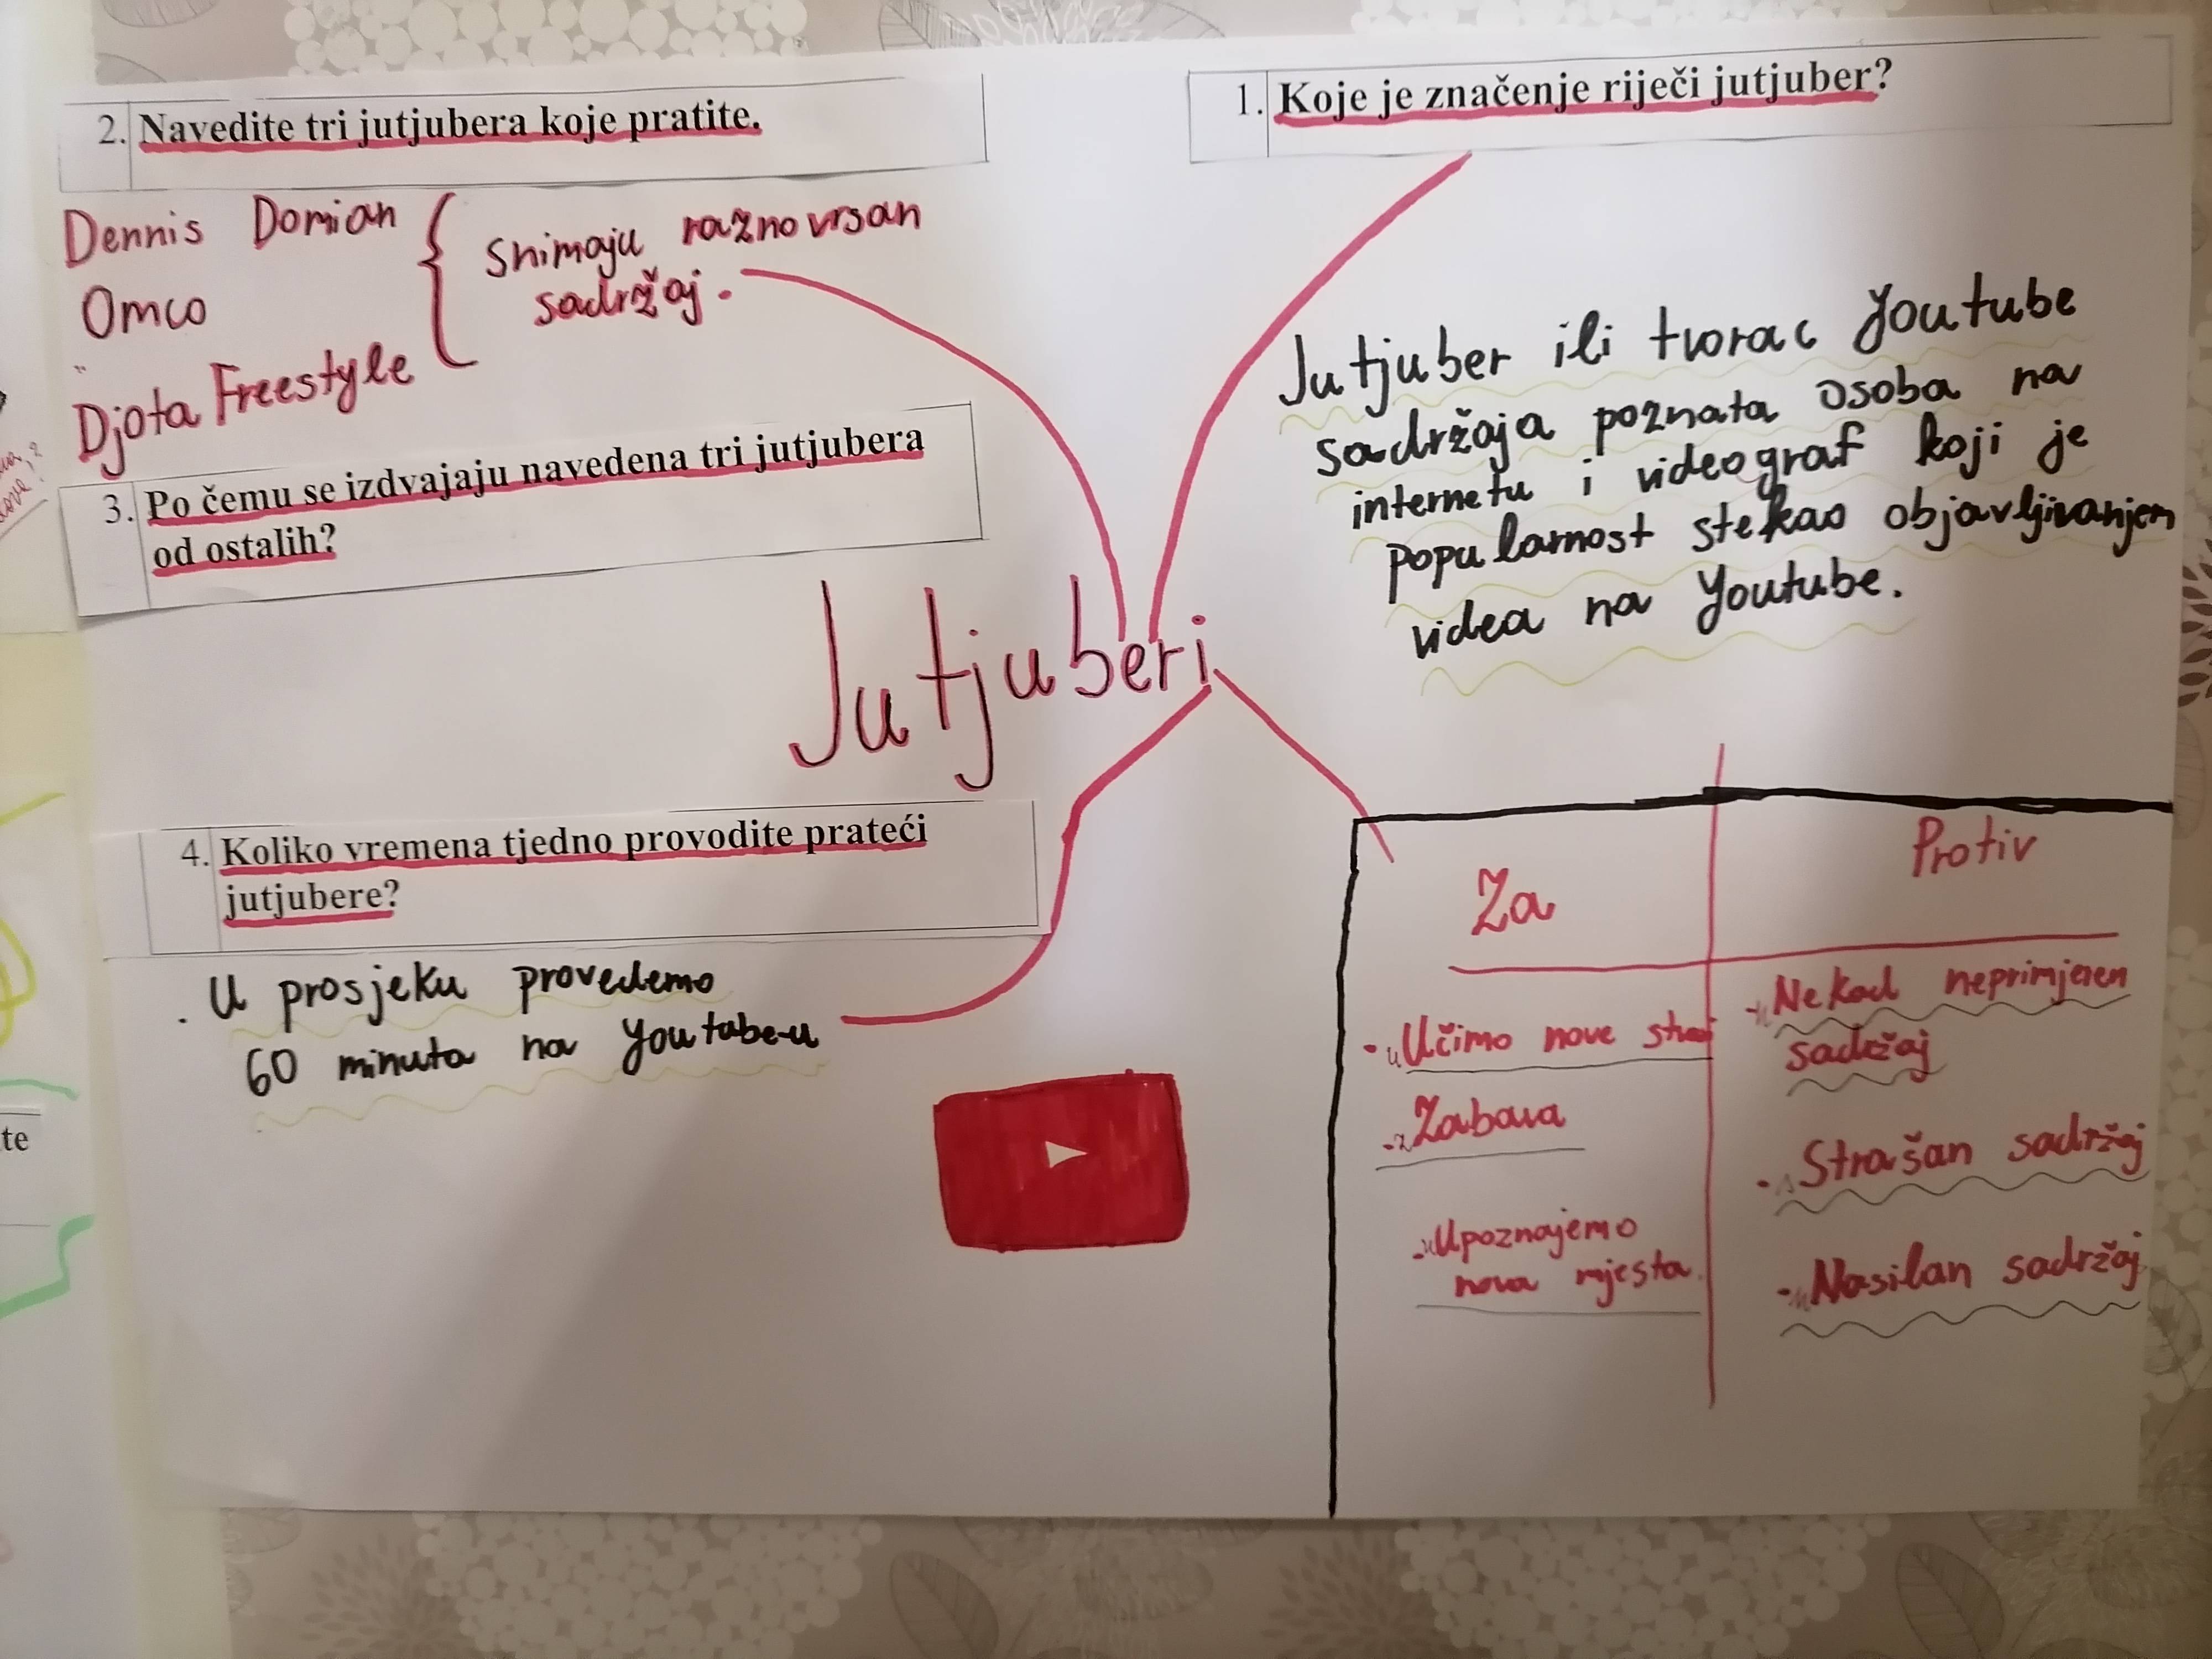 1. Koje je značenje riječi jutjuber?
Jutjuber ili tvorac Youtube
sadržaja poznata osoba na
internetu i videograf koji je
popularnost stekao objavljivanjem
videa na Youtube.
2. Navedite tri jutjubera koje pratite.
Dennis Domian
Omco
Djota Freestyle
Snimaju raznovrsan
sadržaj.
3. Po čemu se izdvajaju navedena tri jutjubera
od ostalih?
Jutjuberi
4. Koliko vremena tjedno provodite prateći
jutjubere?
U prosjeku provedemo
60 minuta na Youtabe-u
Za
- Učimo nove
- Zabava
- Upoznajemo
nova mjesta.
Protiv
- Nekad neprimjeren
sadržaj
- Strašan sadržaj
- Nasilan sadržaj
te